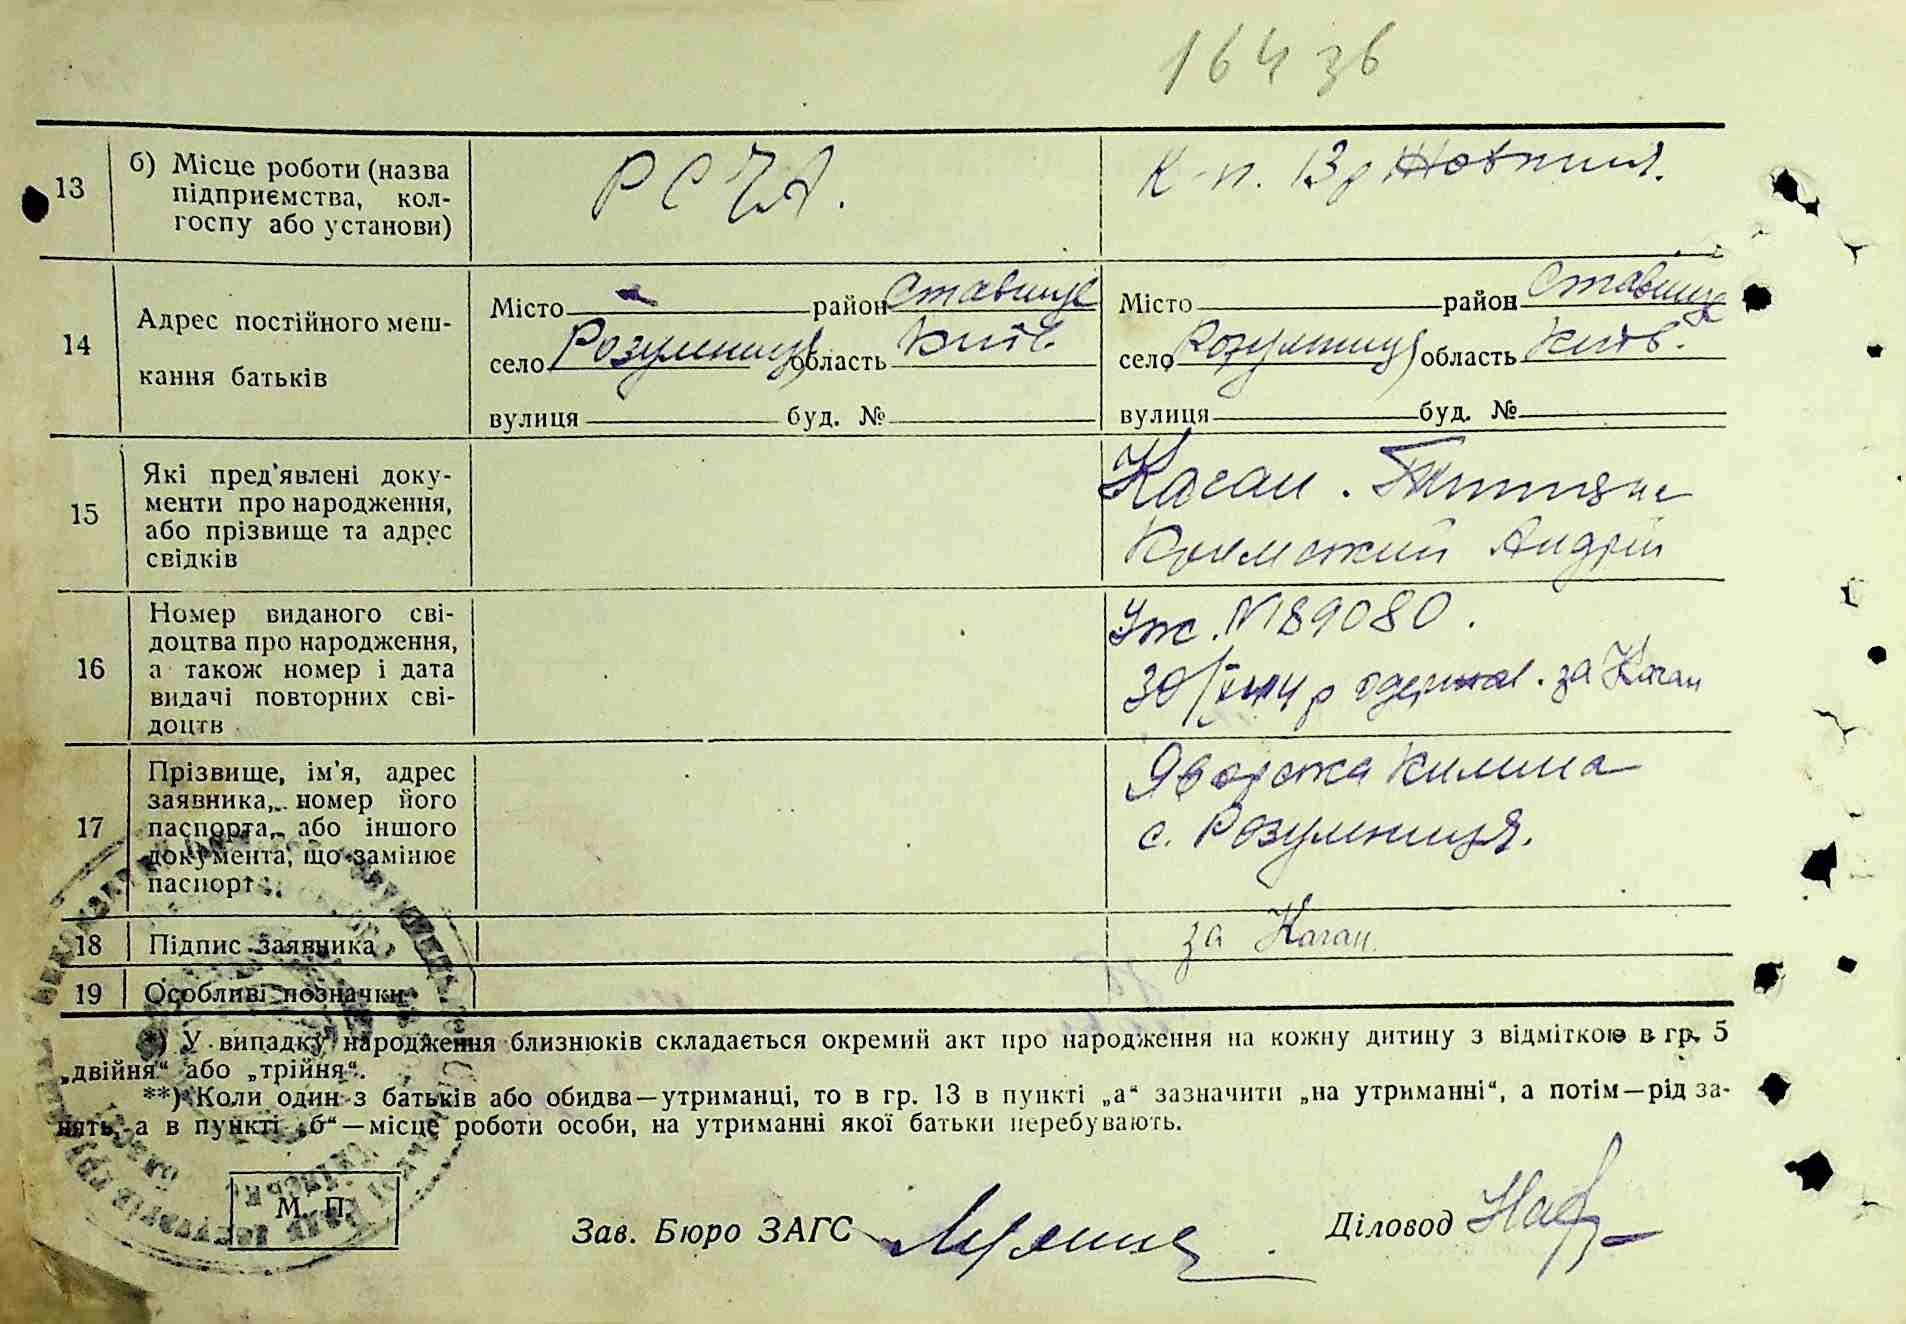 164 зв
13
б) Місце роботи (назва
підприємства, кол-
госпу або установи)
РСЧА.
К-п. 13 р Жовтня.
14
Адрес постійного меш-
кання батьків
Місто район Ставище
село Розумниця область Київ.
вулиця буд. №
Місто район Ставище
село Розумниця область Київ.
вулиця буд. №
15
Які пред'явлені доку-
менти про народження,
або прізвище та адрес
свідків
Каган. Тетяна
Андрій
16
Номер виданого сві-
доцтва про народження,
а також номер і дата
видачі повторних сві-
доцтв
№ 89080.
30/ р одержав. за Каган
17
Прізвище, ім'я, адрес
заявника, номер його
паспорта, або іншого
документа, що замінює
паспорт
Яворська Килина
с. Розумниця.
18
Підпис заявника
за Каган
19
Особливі позначки
*) У випадку народження близнюків складається окремий акт про народження на кожну дитину з відміткою в гр. 5
„двійня“ або „трійня“.
**) Коли один з батьків або обидва—утриманці, то в гр. 13 в пункті „а“ зазначити „на утриманні“, а потім—рід за-
нять, а в пункті „б“—місце роботи особи, на утриманні якої батьки перебувають.
М. П.
Зав. Бюро ЗАГС
Діловод